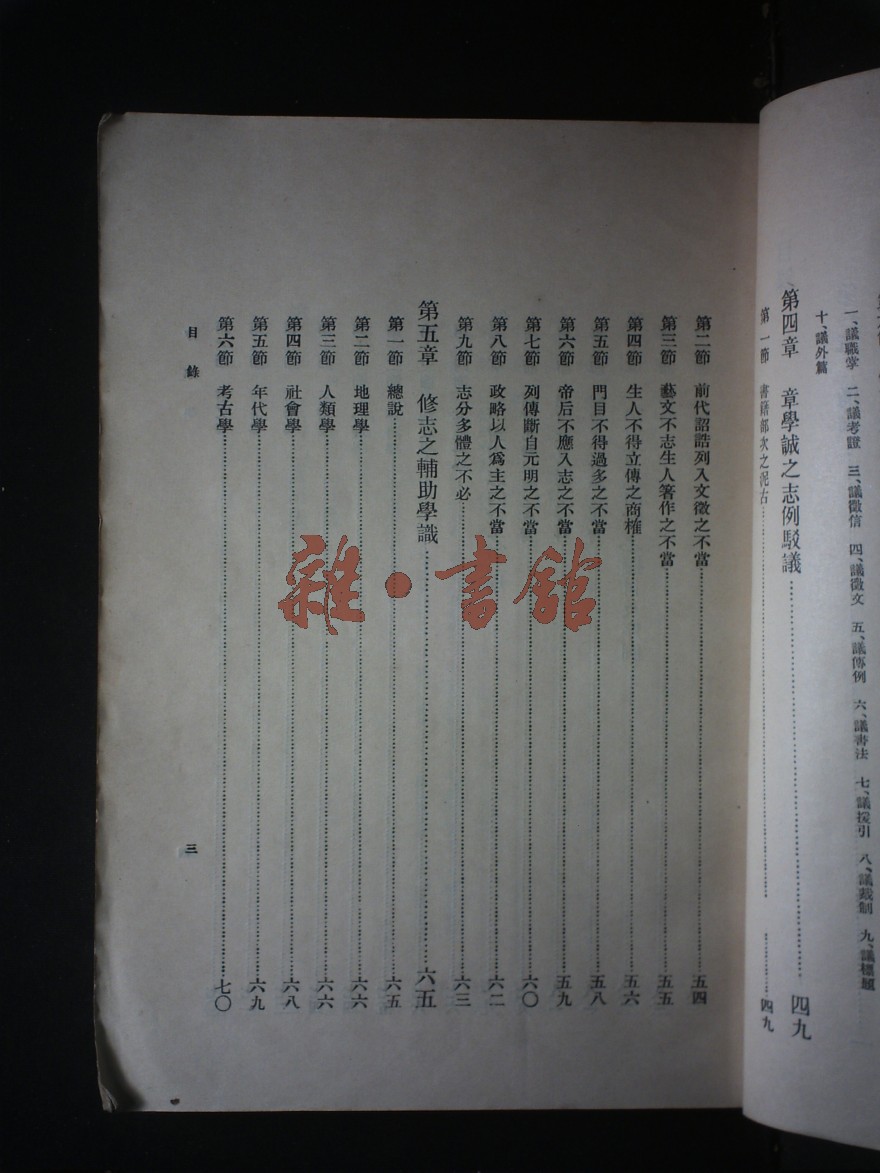 一、議職掌 二、議考證 三、議徵信 四、議徵文 五、議傳例 六、議書法 七、議援引 八、議裁制 九、議標題
十、議外篇
第四章 章學誠之志例駁議 四九
第一節 書籍部次之泥古 四九
第二節 前代詔誥列入文徵之不當 五四
第三節 藝文不志生人箸作之不當 五五
第四節 生人不得立傳之商榷 五六
第五節 門目不得過多之不當 五八
第六節 帝后不應入志之不當 五九
第七節 列傳斷自元明之不當 六〇
第八節 政略以人爲主之不當 六二
第九節 志分多體之不必 六三
第五章 修志之輔助學識 六五
第一節 總說 六五
第二節 地理學 六六
第三節 人類學 六六
第四節 社會學 六八
第五節 年代學 六九
第六節 考古學 七〇
目錄 三
雜·書館